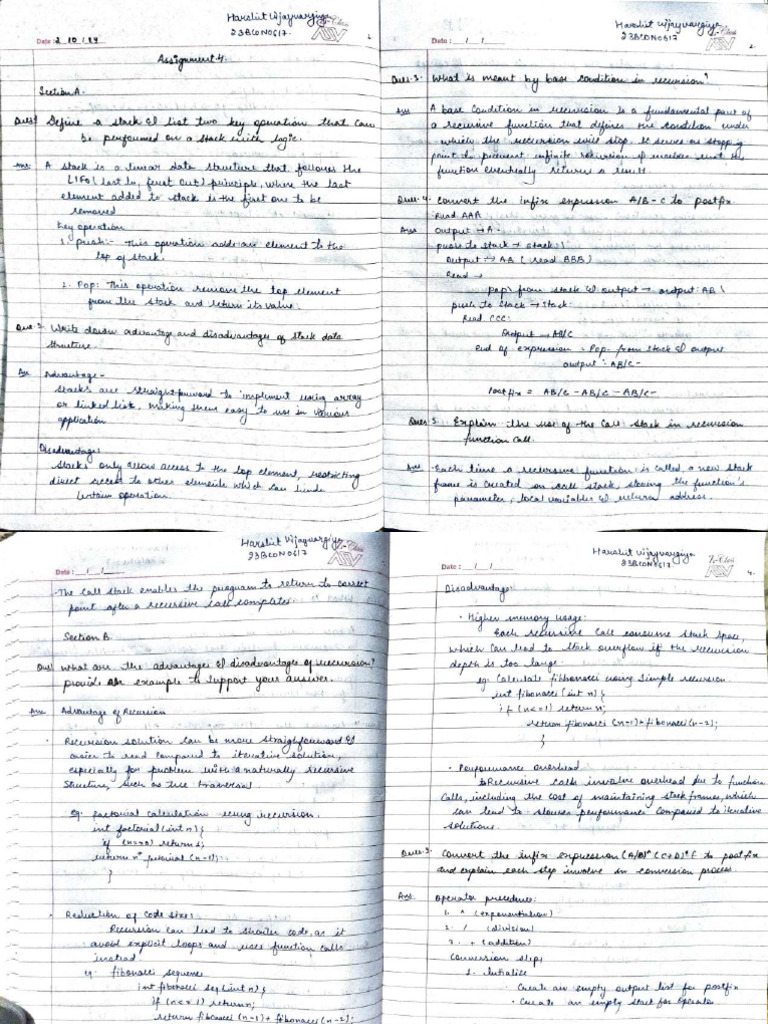 Harshit Vijayvargiya
23BCON0617.
Date: 2/10/24
Assignment 4.
Section A.
Ques1 Define a stack & list two key operation that can
be performed on a stack with logic.
Ans: A stack is a linear data structure that follows the
LIFO (last in, first out) principle, where the last
element added to stack is the first one to be
removed
Key operation
1. Push:- This operation adds an element to the
top of stack.
2. Pop: This operation remove the top element
from the stack and return its value.
Ques-2. Write down advantage and disadvantages of stack data
structure.
Ans Advantage-
Stacks are straightforward to implement using array
or linked list, making them easy to use in various
application
Disadvantage:
Stacks only allows access to the top element, restricting
direct access to other elements which can hinder
certain operation.
Harshit Vijayvargiya
23BCON0617
Date: / /
2.
Ques-3. What is meant by base condition in recursion?
Ans A base condition in recursion is a fundamental part of
a recursive function that defines the condition under
which the recursion will stop. It serves as stopping
point to prevent infinite recursion & that the
function eventually returns a result.
Ques-4. Convert the infix expression A/B-C to postfix
Read AAA
Ans Output → A.
push to stack → stack:
Output → AB (read BBB)
Read →
pop from stack & output → output: AB\
push to stack → Stack
Read CCC:
Output → AB/C
End of expression - Pop from stack & output
output: AB/C-
Postfix = AB/C - AB/C - AB/C-
Ques-5. Explain the use of the call stack in recursion
function call.
Ans Each time a recursive function is called, a new stack
frame is created on call stack, storing the function's
parameter, local variables & return address.
Harshit Vijayvargiya
23BCON0617
Date: / /
-The call stack enables the program to return to correct
point after a recursive call completes.
Section B
Ques1 What are the advantages & disadvantages of recursion?
provide an example to support your answer.
Ans Advantage of Recursion
Recursion solution can be more straightforward &
easier to read compared to iterative solution,
especially for problem with a naturally recursive
structure, such as tree traversal
eg: factorial calculation using recursion.
int factorial (int n) {
if (n==0) return 1;
return n* factorial (n-1);
}
Reduction of code size:
Recursion can lead to shorter code, as it
avoid explicit loops and uses function calls
instead
eg: fibonacci sequence
int fibonacci seq (int n) {
if (n<=1) return n;
return fibonacci (n-1) + fibonacci (n-2);
Harshit Vijayvargiya
23BCON0617.
Date: / /
4.
Disadvantage:
• Higher memory usage:
Each recursive call consume stack space,
which can lead to stack overflow if the recursion
depth is too large
eg: Calculate fibbonacci using simple recursion.
int fibonacci (int n) {
if (n<=1) return n;
return fibonacci (n-1)+fibonacci (n-2);
}
• Performance overhead
Recursive calls involve overhead due to function
calls, including the cost of maintaining stack frames, which
can lead to slower performance compared to iterative
solutions.
Ques-2. Convert the infix expression (A/B)* (C+D)^E to postfix
and explain each step involve in conversion process
Ans. Operator precedence:
1. ^ (exponentiation)
2. / (division)
3. + (addition)
Conversion steps
1. Initialize
• Create an empty output list for postfix
• Create an empty stack for operator